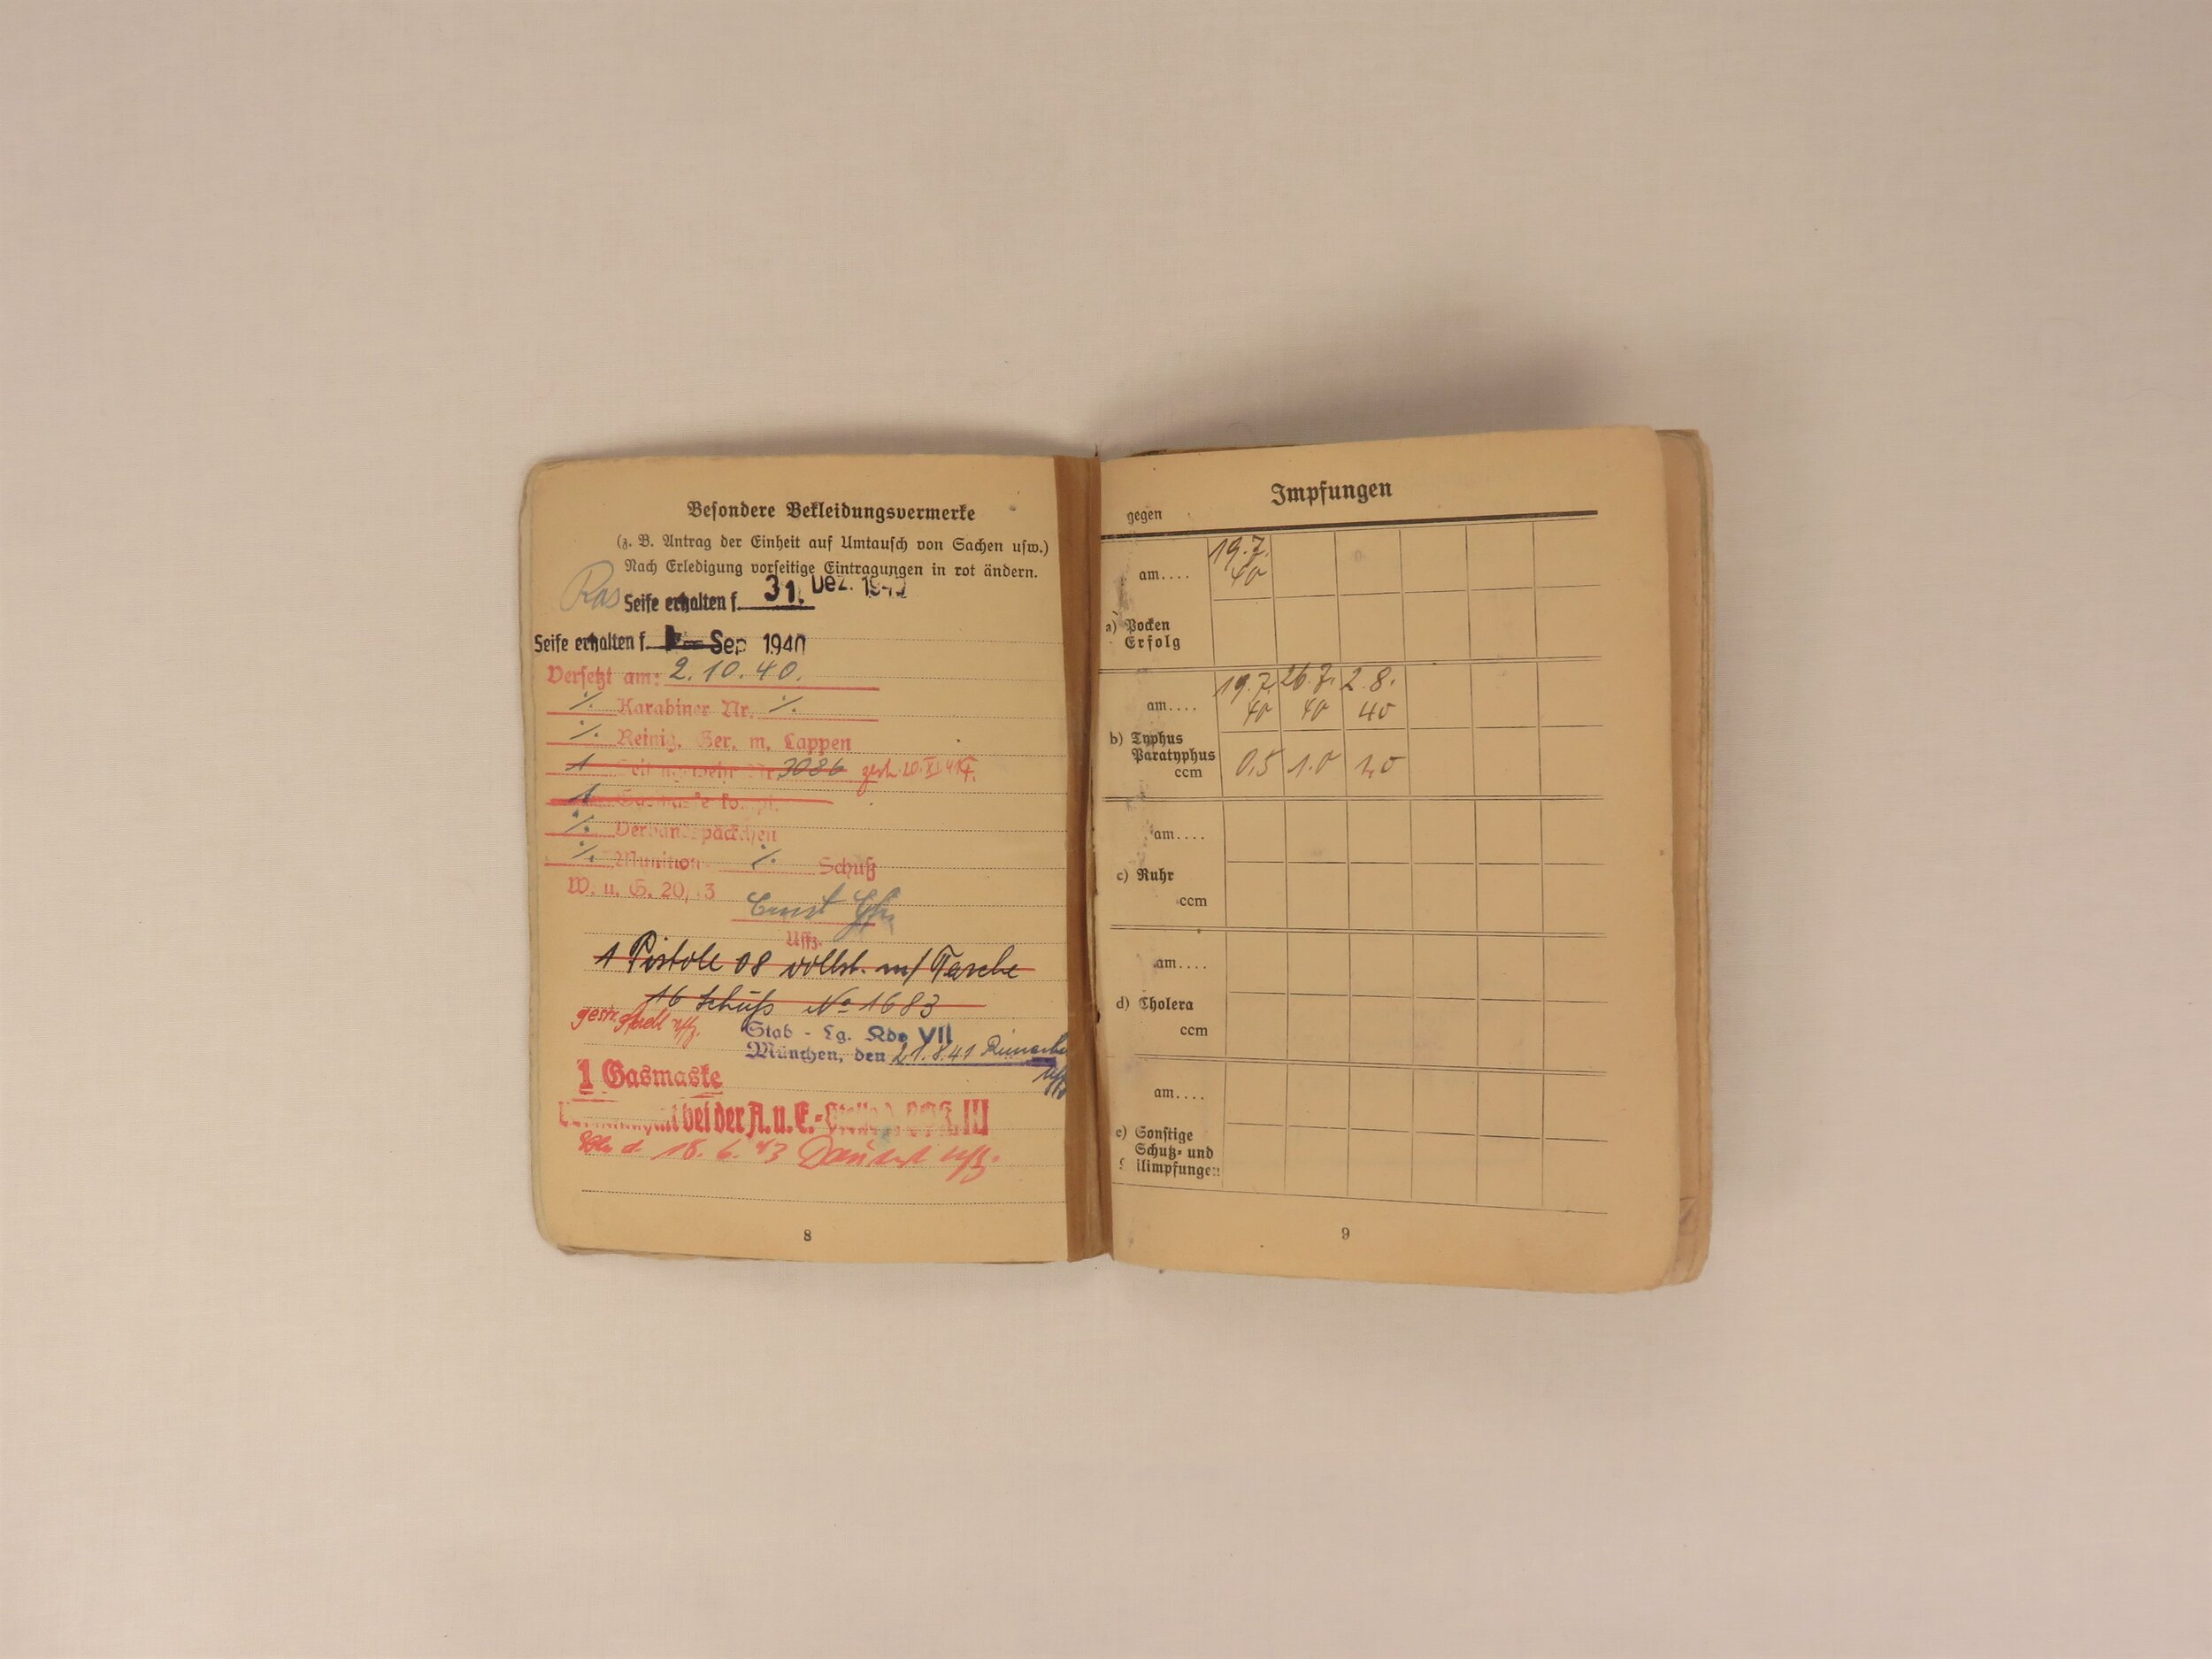 Besondere Bekleidungsvermerke
(z. B. Antrag der Einheit auf Umtausch von Sachen usw.)
Nach Erledigung vorseitige Eintragungen in rot ändern.
Ras Seife erhalten f. 31. Dez.
Seife erhalten f. Sep 1940
Versetzt am: 2.10.40.
./. Karabiner Nr. ./.
./. Reinig. Ger. m. Lappen
1 Seitengewehr Nr. 3086
1 Gasmaske kompl.
./. Verbandspäckchen
./. Munition ./. Schuß
W. u. G.
Ernst
Uffz.
1 Pistole 08 vollst. m/ Tasche
16 Schuß No 1683
gestr. Uffz.
Stab - Lg. Kdo VII
München, den 21.8.41
Uffz
1 Gasmaske
bei der A. u. E.-
d. 18. 6. 43 Uffz.
8
Impfungen
gegen
am.... 19.7. 40
a) Pocken
Erfolg
am.... 19.7. 40 26.7. 40 2.8. 40
b) Typhus
Paratyphus
ccm 0,5 1.0 1,0
am....
c) Ruhr
ccm
am....
d) Cholera
ccm
am....
e) Sonstige
Schutz- und
ilimpfungen
9